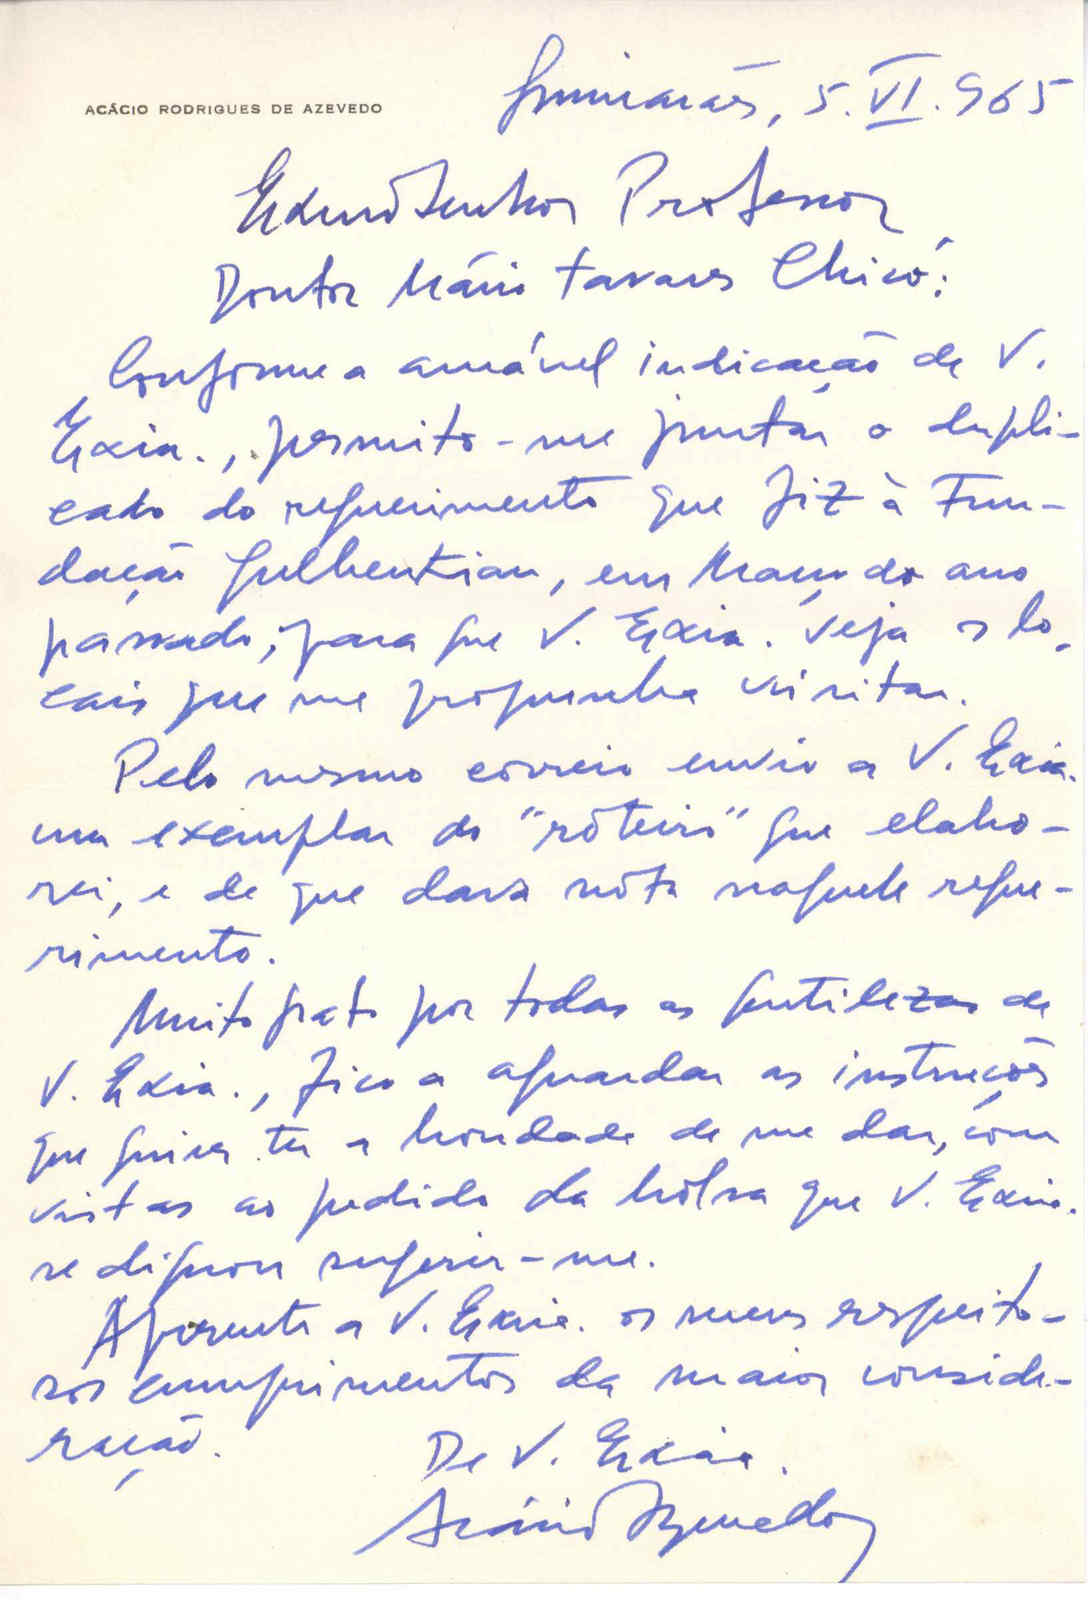 ACÁCIO RODRIGUES DE AZEVEDO
Guimarães, 5.VI.965
Exmo Senhor Professor
Doutor Mário Tavares Chicó:
Conforme a amável indicação de V.
Exia., permito-me juntar o dupli-
cado do requerimento que fiz à Fun-
dação Gulbenkian, em Março do ano
passado, para que V. Exia. veja os lo-
cais que me propunha visitar.
Pelo mesmo correio envio a V. Exia.
um exemplar do "rôteiro" que elabo-
rei, e de que dava nota naquele reque-
rimento.
Muito grato por todas as gentilezas de
V. Exia., fico a aguardar as instruções
que queira ter a bondade de me dar, com
vistas ao pedido da bôlsa que V. Exia.
se dignou sugerir-me.
Apresento a V. Exia. os meus respeito-
sos cumprimentos da maior conside-
ração.
De V. Exia.
Acácio Azevedo